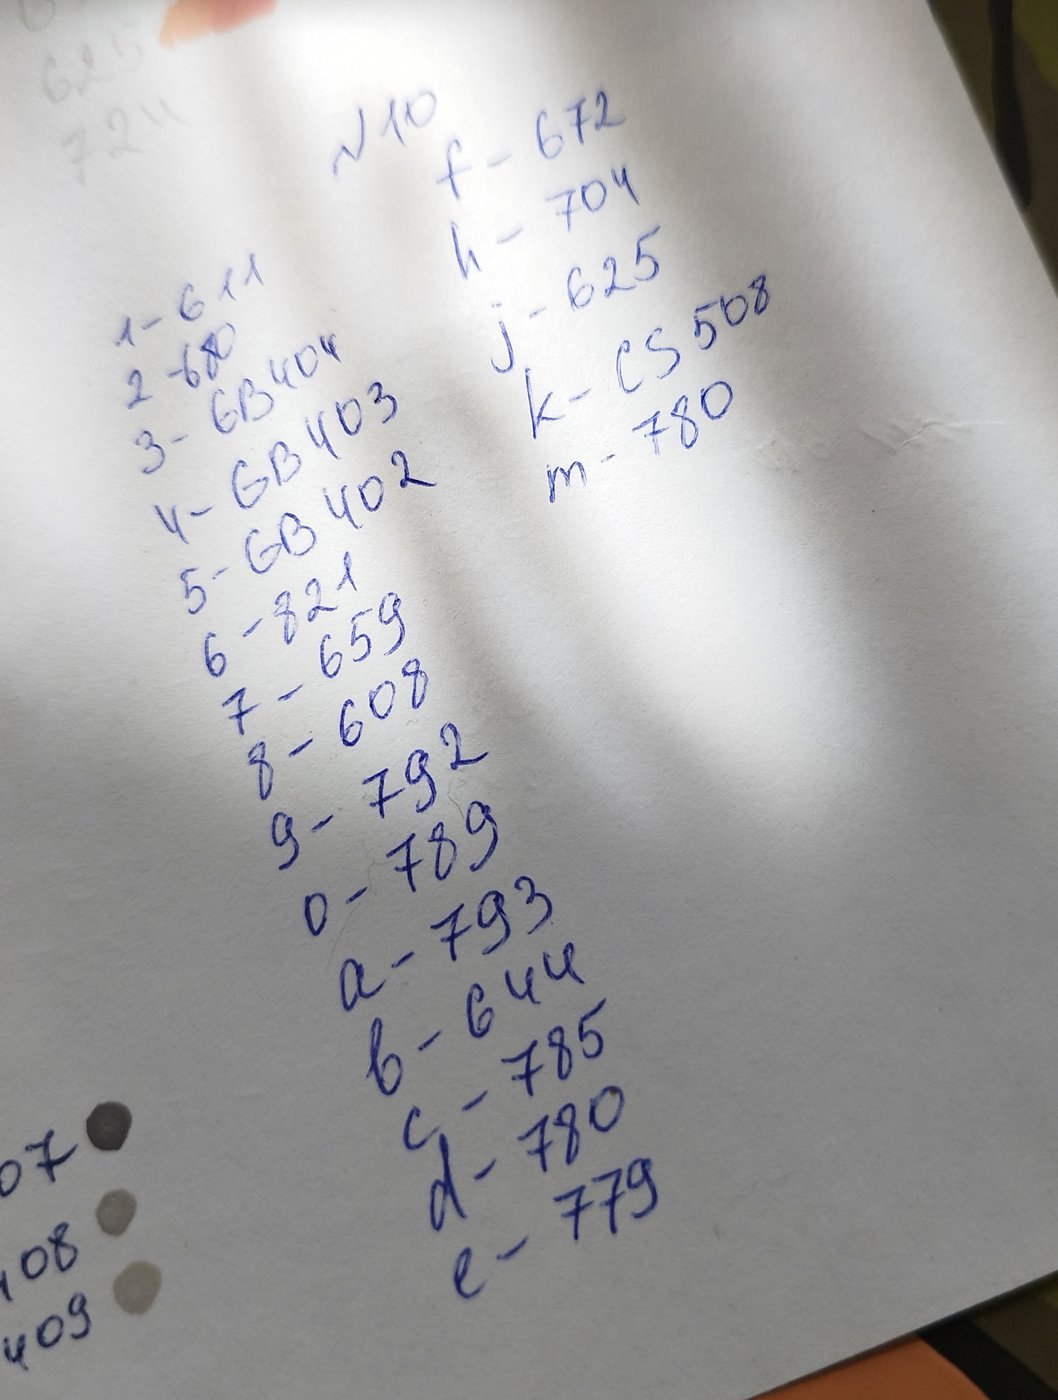 №10
1-611
2-680
3-GB404
4-GB403
5-GB402
6-821
7-659
8-608
9-792
0-789
a-793
b-644
c-785
d-780
e-779
f-672
h-704
j-625
k-CS508
m-780
07
408
409
625
724